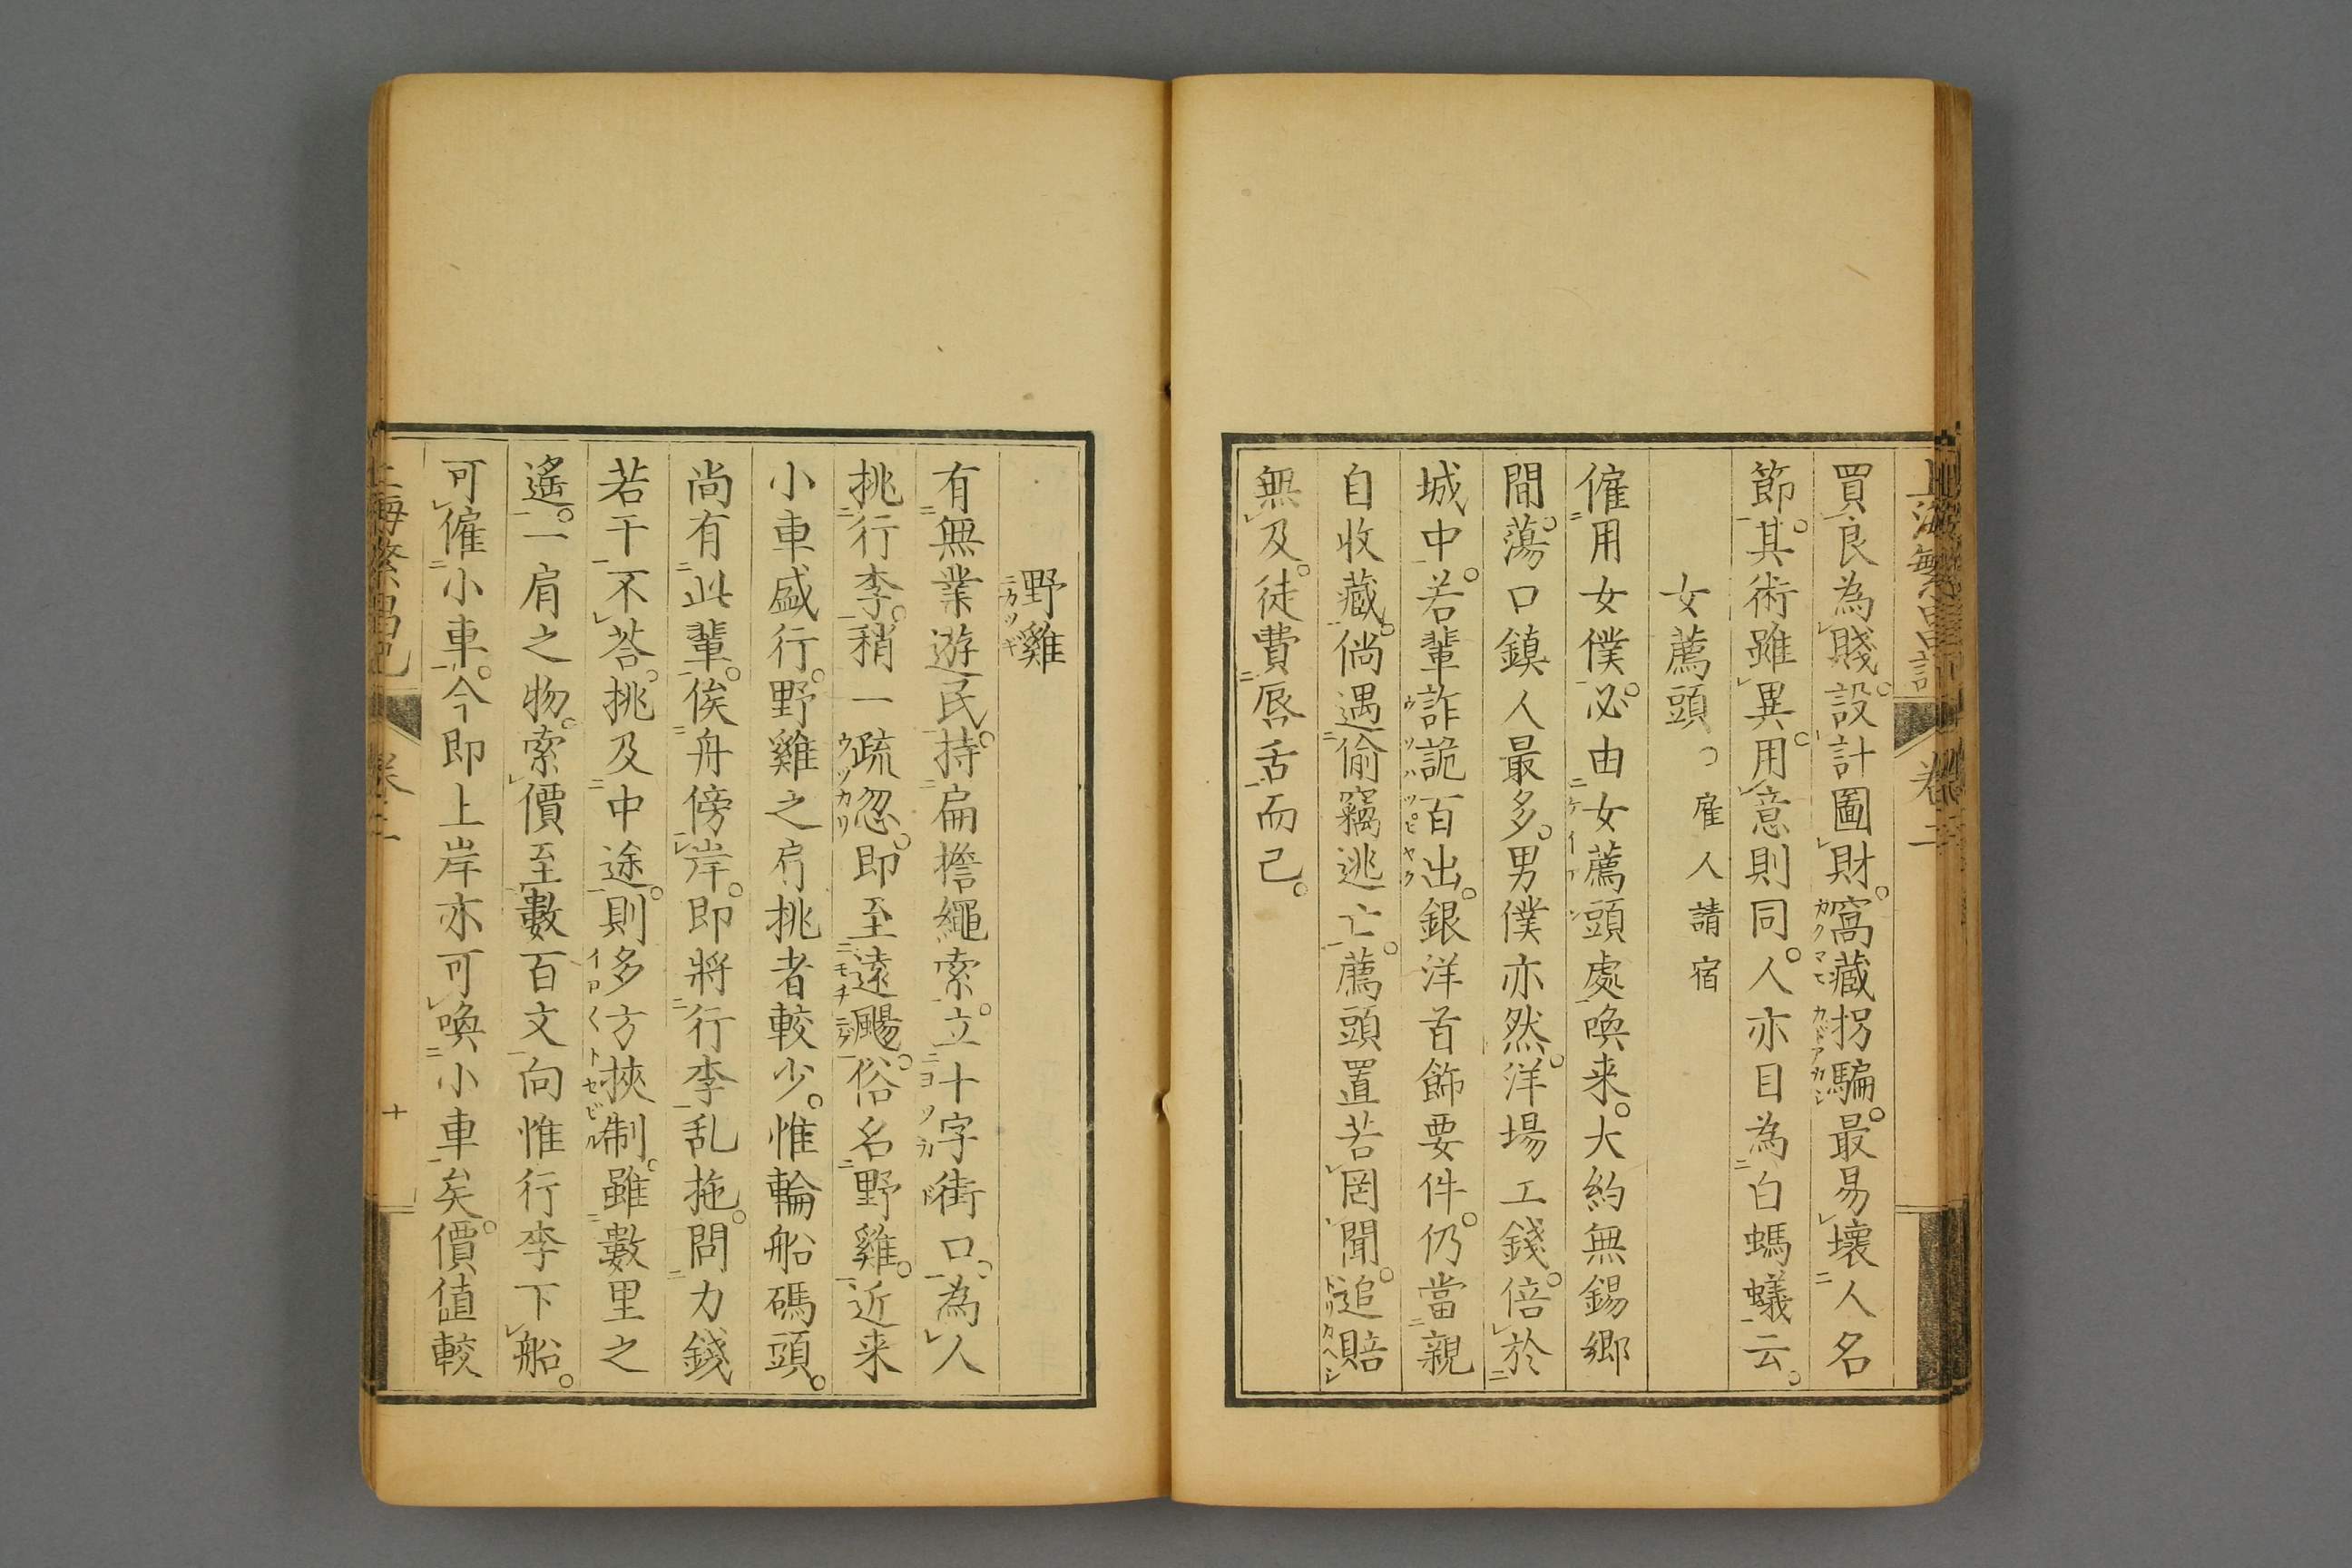 上海繁昌記 卷二
買良為賤。設計圖財。窩藏拐騙。最易壞人名
節。其術雖異。用意則同。人亦目為白螞蟻云。
女薦頭 雇人請宿
僱用女僕。必由女薦頭處喚来。大約無錫鄉
間。蕩口鎮人最多。男僕亦然。洋場工錢。倍於
城中。若輩詐詭百出。銀洋首飾要件。仍當親
自收藏。倘遇偷竊逃亡。薦頭置若罔聞。追賠
無及。徒費唇舌而已。
野雞
有無業遊民。持扁擔繩索。立十字街口。為人
挑行李。稍一疏忽。即至遠颺。俗名野雞。近来
小車盛行。野雞之肩挑者較少。惟輪船碼頭。
尚有此輩。俟舟傍岸。即將行李乱拖。問力錢
若干不荅。挑及中途。則多方挾制。雖數里之
遙。一肩之物。索價至數百文。向惟行李下船。
可僱小車。今即上岸亦可喚小車矣。價值較
上海繁昌記 卷二 十